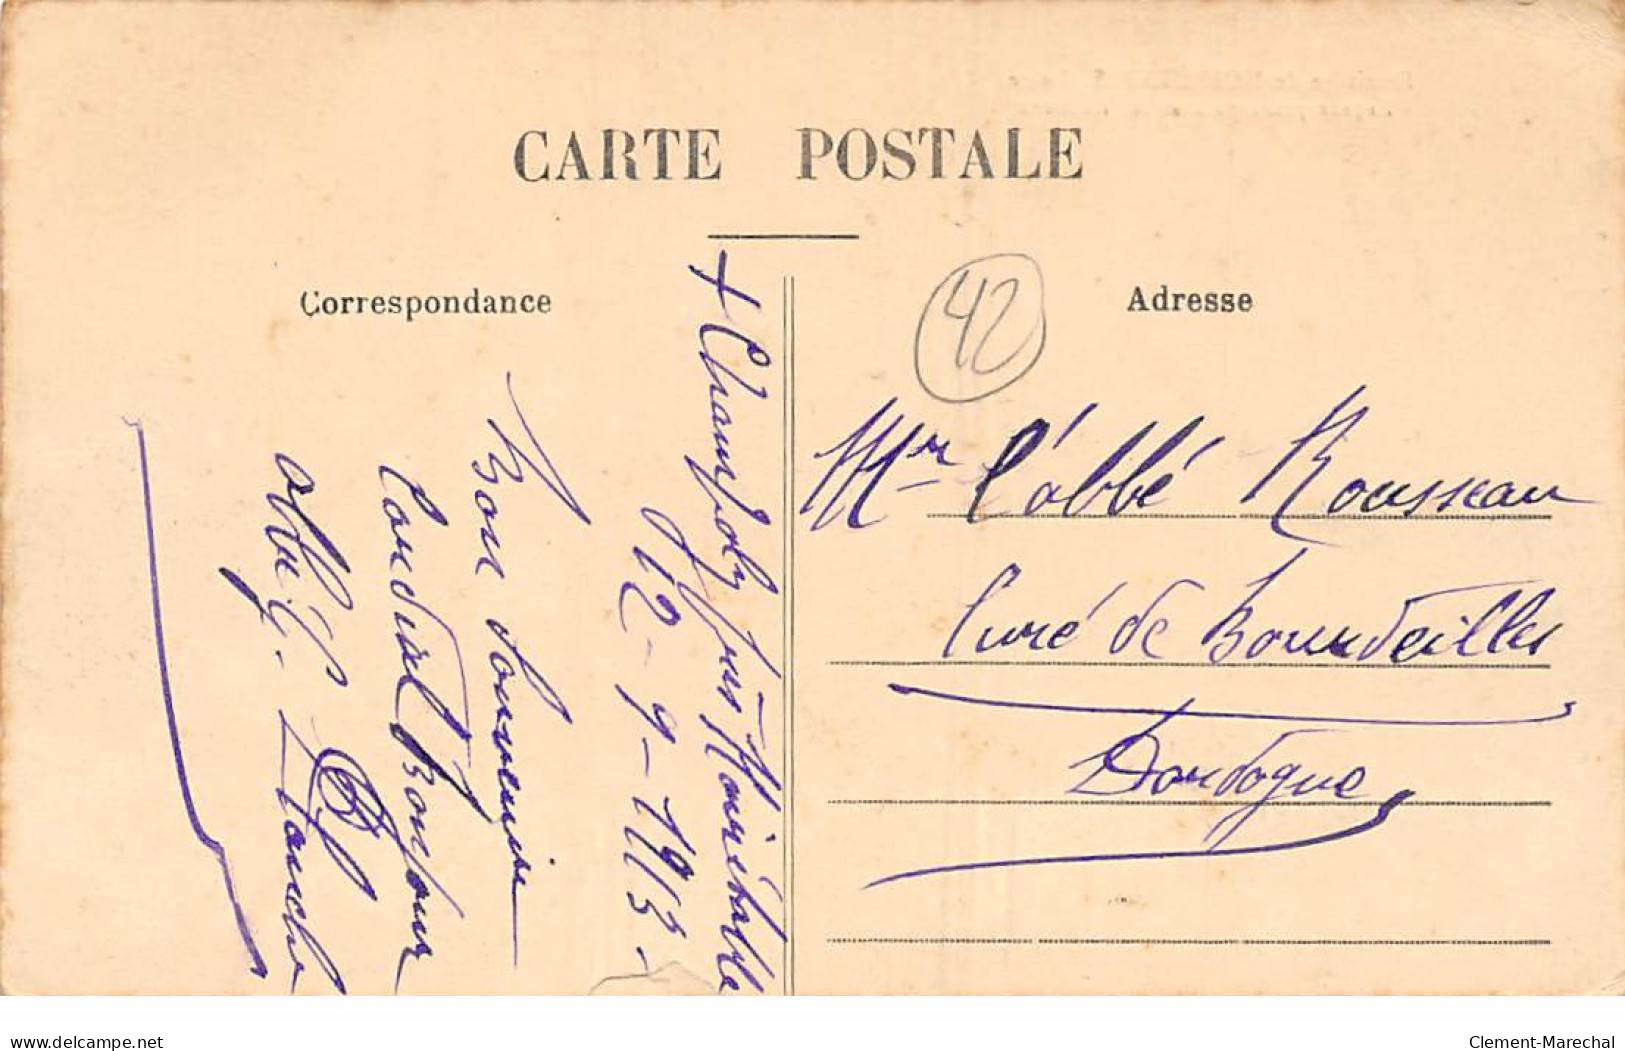 CARTE POSTALE
Correspondance
Adresse
42
+ Champoly près Noirétable
12-9-1913-
Bon Souvenir
Cordial Bonjour
Abbé
Mr l'abbé Rousseau
Curé de Bourdeilles
Dordogne
delcampe.net
Clement-Marechal